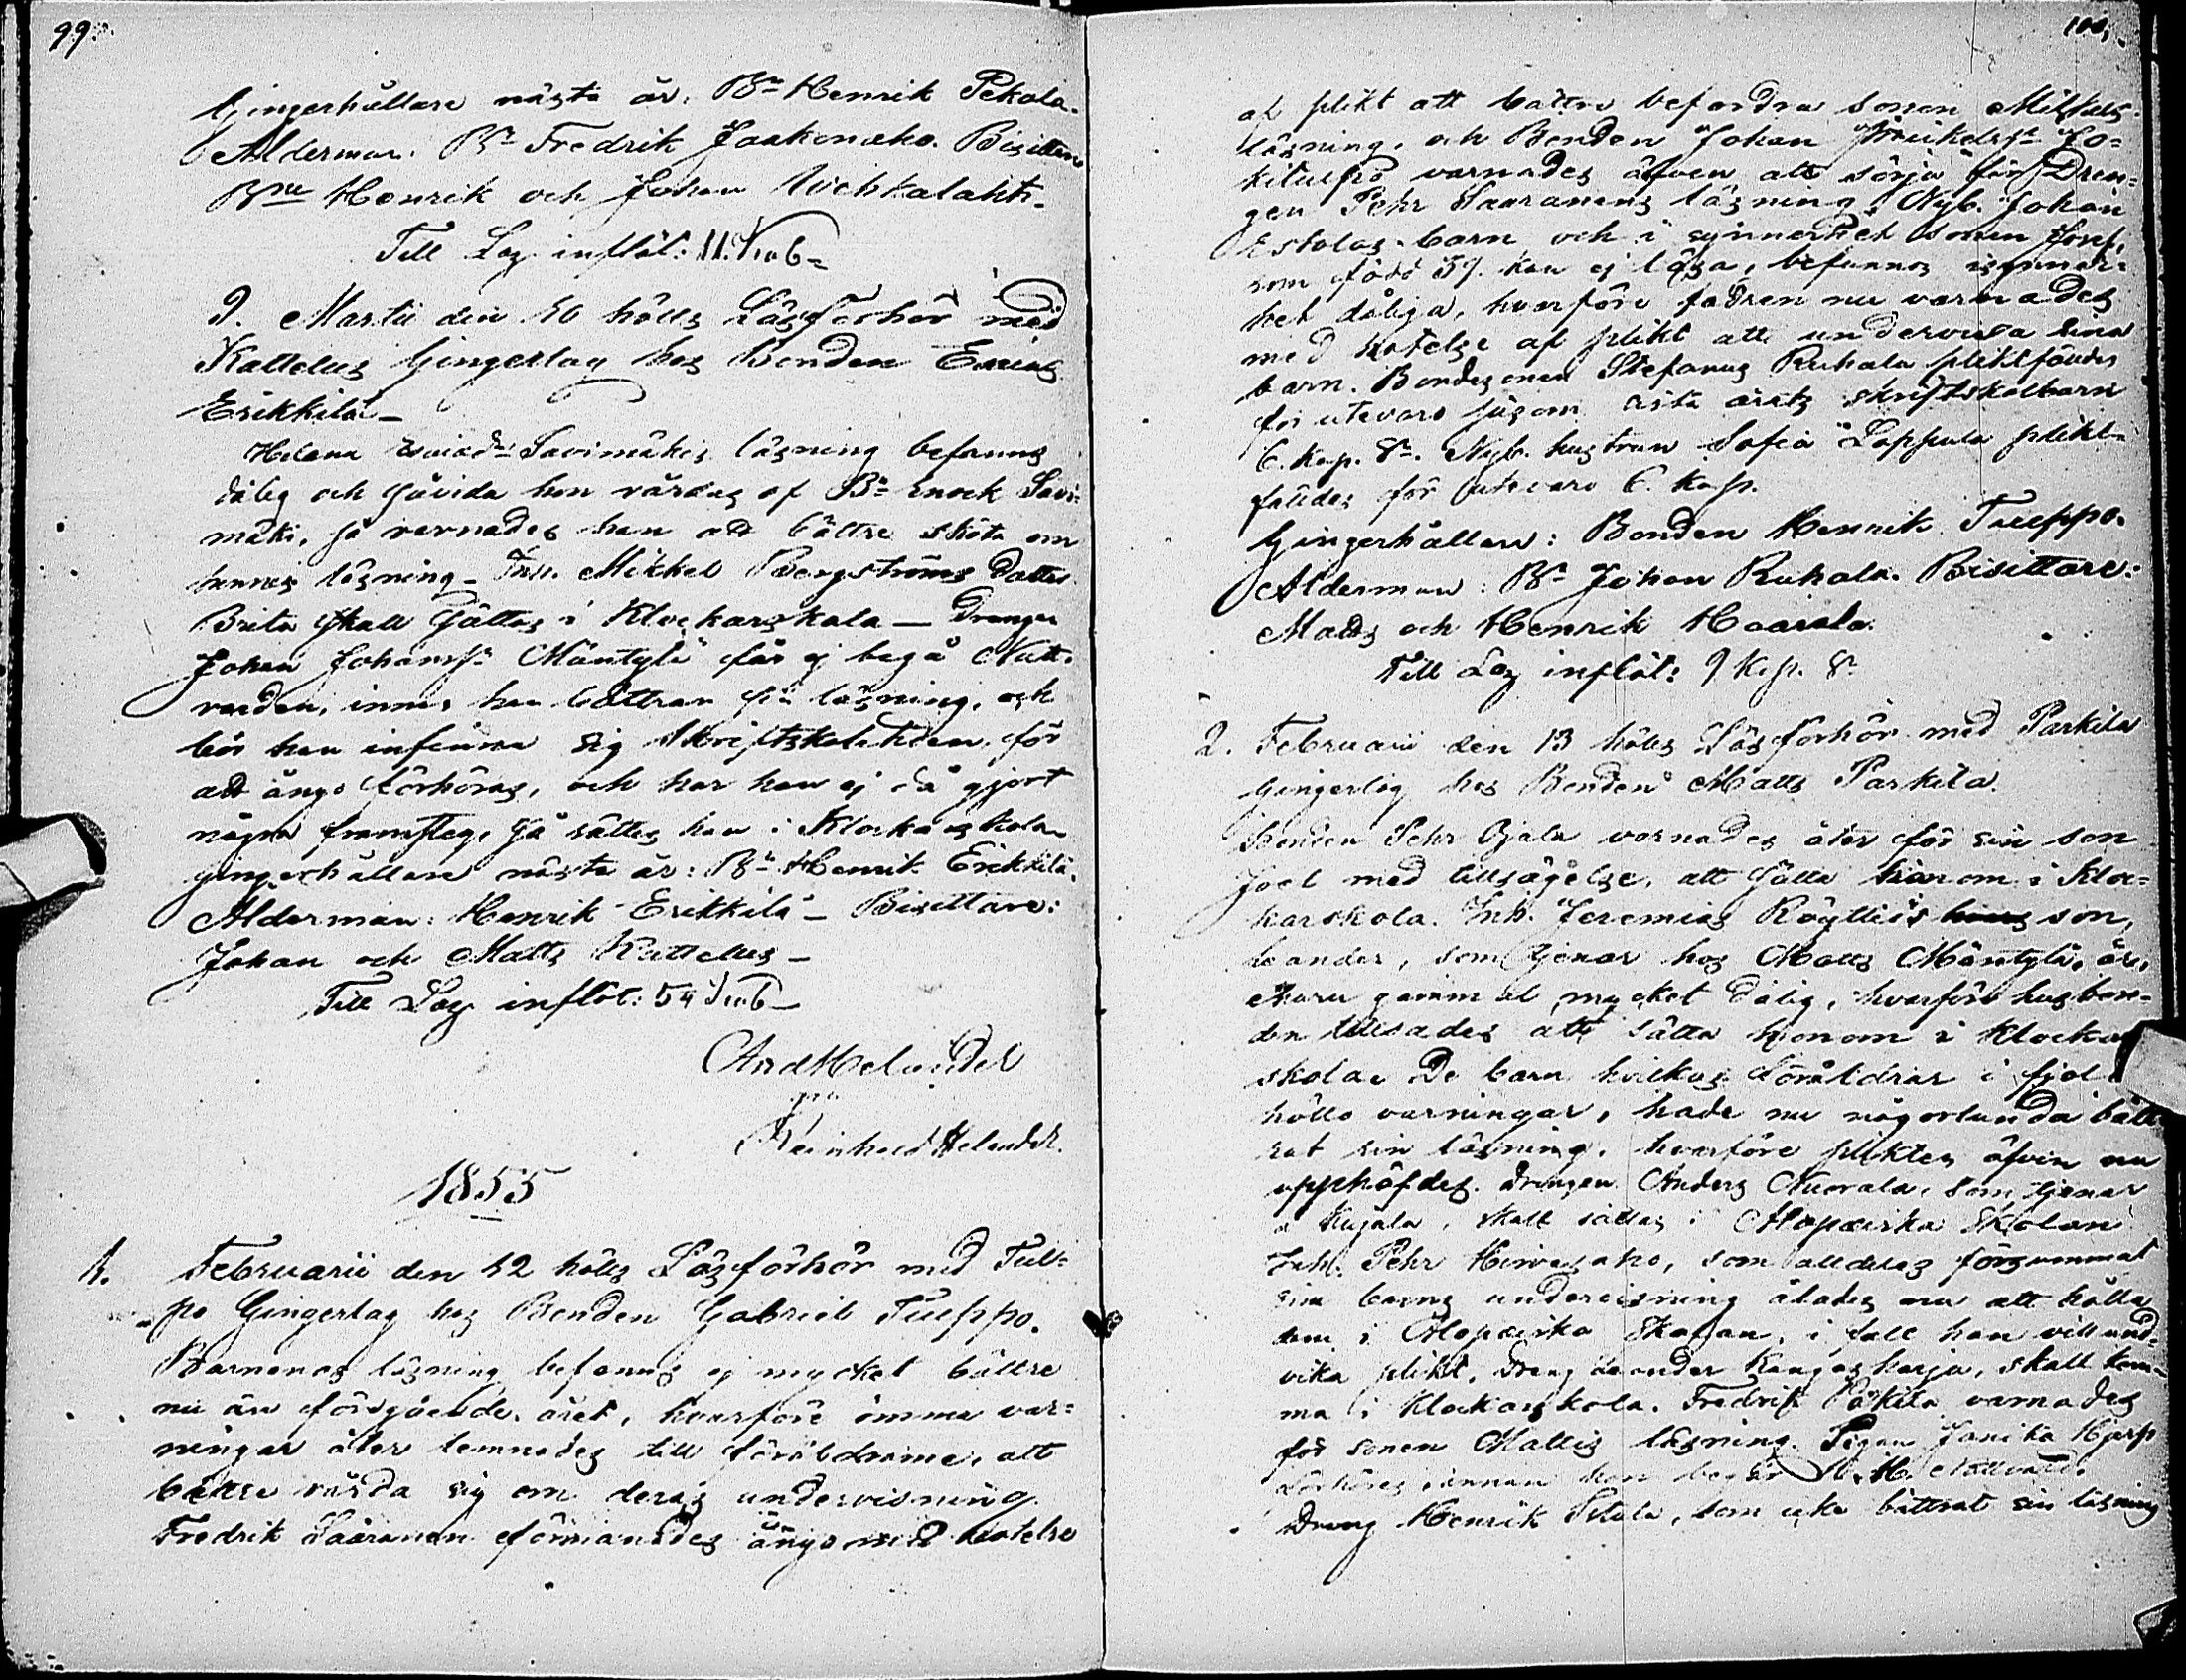 99.
Gingerhållare nästa år: Bn Henrik Pekola.
Ålderman. Bn Fredrik Jaakonaho. Bisittare
Bne Henrik och Johan Wehkalahti.
Till Lag inflöt: 11. Rub
9. Martii den 10 hölls Läsförhör med
Kattelus Gingerlag hos Bonden Esaias
Erikkilä
Helena Esaiasdr Savimäkis läsning befanns
dålig och såvida hon vårdas af Bn Enock Savi-
mäki, så varnades han att bättre sköta om
hennes läsning. Inh. Mikkel Bergströms dotter
Brita skall sättas i Klockarskola — Drengen
Johan Johanss. Mäntylä får ej begå Natt-
varden, innan han bättrar sin läsning, och
bör han infinna sig Skriftskoletiden, för
att ånyo förhöras, och har han ej då gjort
några framsteg, så sättes han i Klockarskola.
Gingerhållare nästa år: Bn Henrik Erikkilä.
Ålderman: Henrik Erikkilä — Bisittare:
Johan och Matts Kattelus —
Till Lag inflöt: 54 Rub
And Helander
Reinhold Helander.
1855
1. Februarii den 12 hölls Läsförhör med Tuep-
po Gingerlag hos Bonden Gabriel Tueppo.
Barnenas läsning befanns ej mycket bättre
nu än föregående året, hvarföre ömma var-
ningar åter lemnades till föräldrarne, att
bättre vårda sig om deras undervisning.
Fredrik Saaranen förmanades ånyo med hotelse
100.
af plikt att bättre befordra sonen
läsning, och Bonden Johan Jo-
kitueppo varnades äfven att sörja för Dren-
gen Pehr Saaranens läsning. Nyb. Johan
Estolas barn och i synnerhet sonen
som född 37. kan ej läsa, befunnos isynner-
het dåliga, hvarföre fadren nu varnades
med hotelse af plikt att undervisa sina
barn. Bondesonen Stefanus Ruhala pliktfäldes
för utevaro såsom sista årets skriftskolbarn
6. Kop. Sr. Nyb. hustrun Sofia Lappula plikt-
fäldes för utevaro 6. Kop.
Gingerhållare: Bonden Henrik Tueppo.
Ålderman: Bn Johan Ruhala. Bisittare:
Matts och Henrik Haarala.
Till Lag inflöt: 9 Kop. Sr
2. Februarii den 13 hölls Läsförhör med Parkila
Gingerlag hos Bonden Matts Parkila.
Bonden Pehr Ojala varnades åter för sin son
Joel med tillsägelse, att sätta honom i Kloc-
karskola. Inh. Jeremias Röyttiös son,
Leander, som tjenar hos Matts Mäntylä, är,
ehuru gammal mycket dålig, hvarföre husbon-
den tillsades att sätta honom i Klockar
skola. De barn hvilkas Föräldrar i fjol
höllo varningar, hade nu någorlunda bätt
rat sin läsning, hvarföre plikten äfven nu
upphäfdes. Drengen Anders Nuorala, som tjenar
å Kujala, skall sättas i Alapaiska Skolan
Inh. Pehr Hirvesaho, som alldeles försummat
sina barns undervisning ålades nu att hålla
dem i Alapaiska Skolan, i fall han vill und-
vika plikt. Dreng Leander Kangasharju, skall kom-
ma i Klockarskola. Fredrik Päkilä varnades
för sonen Mattis läsning. Pigan Janika Hjerp
förhöres innan hon begår H. H. Nattvard.
Dreng Henrik Ristola, som icke bättrat sin läsning